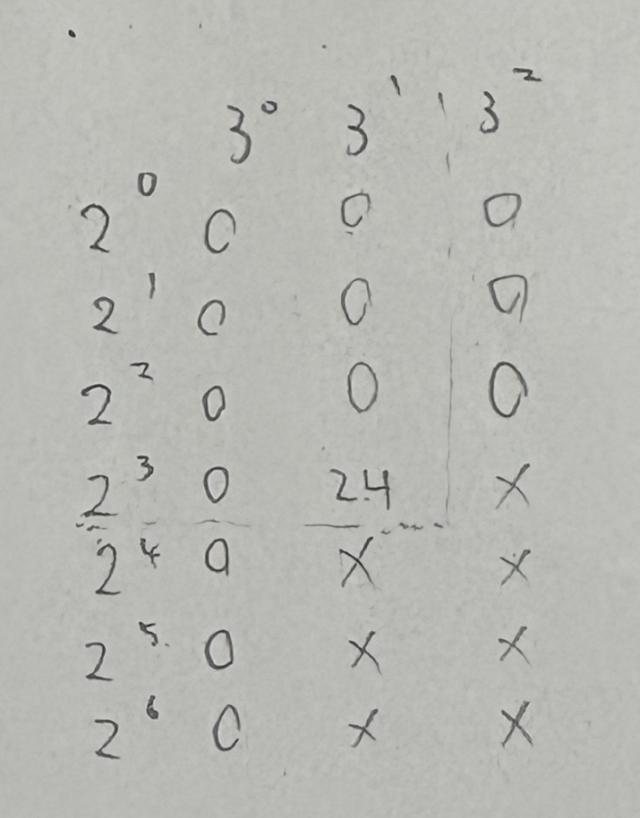 3⁰ 3¹ 3²
2⁰ 0 0 0
2¹ 0 0 0
2² 0 0 0
2³ 0 24 X
2⁴ 0 X X
2⁵ 0 X X
2⁶ 0 X X